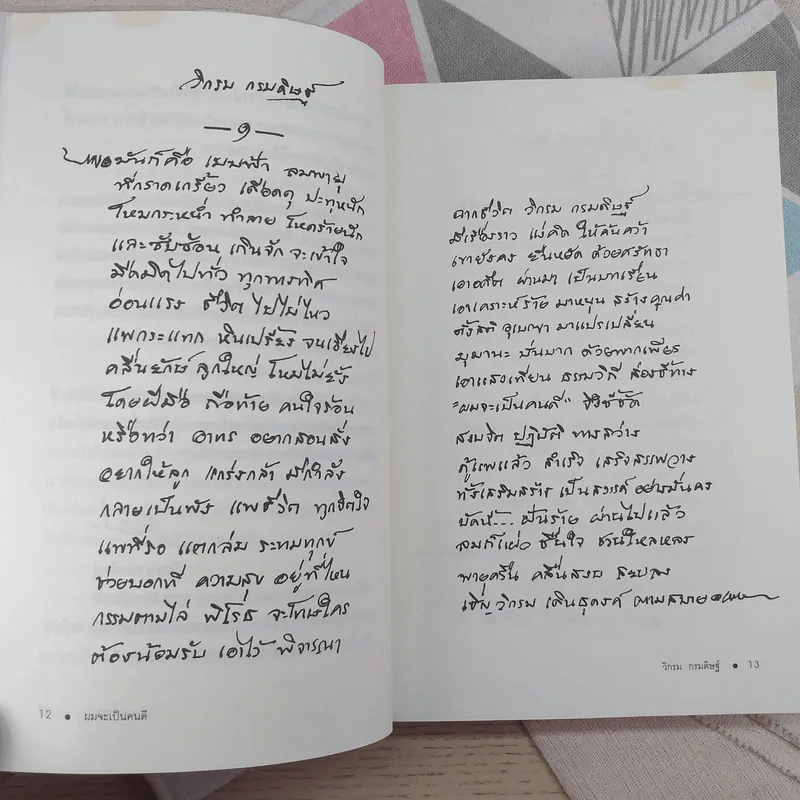 วิกรม กรมดิษฐ์
— ๑ —
พ่อมันก็คือ เมฆฟ้า ลมพายุ
ที่กราดเกรี้ยว เดือดดุ ปะทุหนัก
โหมกระหน่ำ ทำลาย โหดร้ายนัก
และซับซ้อน เกินจัก จะเข้าใจ
มืดมิดไปทั่ว ทุกทิศ
อ่อนแรง ชีวิต ไปไม่ไหว
แพกระแทก หินเปรี้ยง จนเอียงไป
คลื่นยักษ์ ลูกใหญ่ โหมไม่ยั้ง
โดยฝีมือ ถือท้าย คนใจร้อน
หรือทว่า อาทร อยากสอนสั่ง
อยากให้ลูก แกร่งกล้า มีกำลัง
กลายเป็นพัง แพชีวิต ทุกจิตใจ
แพที่รอ แตกล่ม ระทมทุกข์
ช่วยบอกที ความสุข อยู่ที่ไหน
กรรมตามไล่ พิโรธ จะโทษใคร
ต้องน้อมรับ เอาไว้ พิจารณา
12 • ผมจะเป็นคนดี
จากชีวิต วิกรม กรมดิษฐ์
มีเรื่องราว แง่คิด ให้ค้นคว้า
เขายังคง ยืนหยัด ด้วยศรัทธา
เอาอดีต ผ่านมา เป็นบทเรียน
เอาเคราะห์ร้าย มาหนุน สร้างคุณค่า
ตั้งสติ อุเบกขา มาแปรเปลี่ยน
มุมานะ บั่นบาก ด้วยพากเพียร
เอาแสงเทียน ธรรมวิถี ส่องชี้ทาง
"ผมจะเป็นคนดี" จึงชี้ชัด
สงบจิต ปฏิบัติ ทางสว่าง
กู้แพแล้ว สำเร็จ เสร็จสรรพวาง
ทั้งเสริมสร้าง เป็นสงรค์ อย่างมั่นคง
บัดนี้... ฝันร้าย ผ่านไปแล้ว
ลมก็แผ่ว ชื่นใจ ชวนใหลหลง
พายุครืน คลื่นสงบ สะบลง
เชิญ วิกรม เดินธุดงค์ ตามสบาย
วิกรม กรมดิษฐ์ • 13